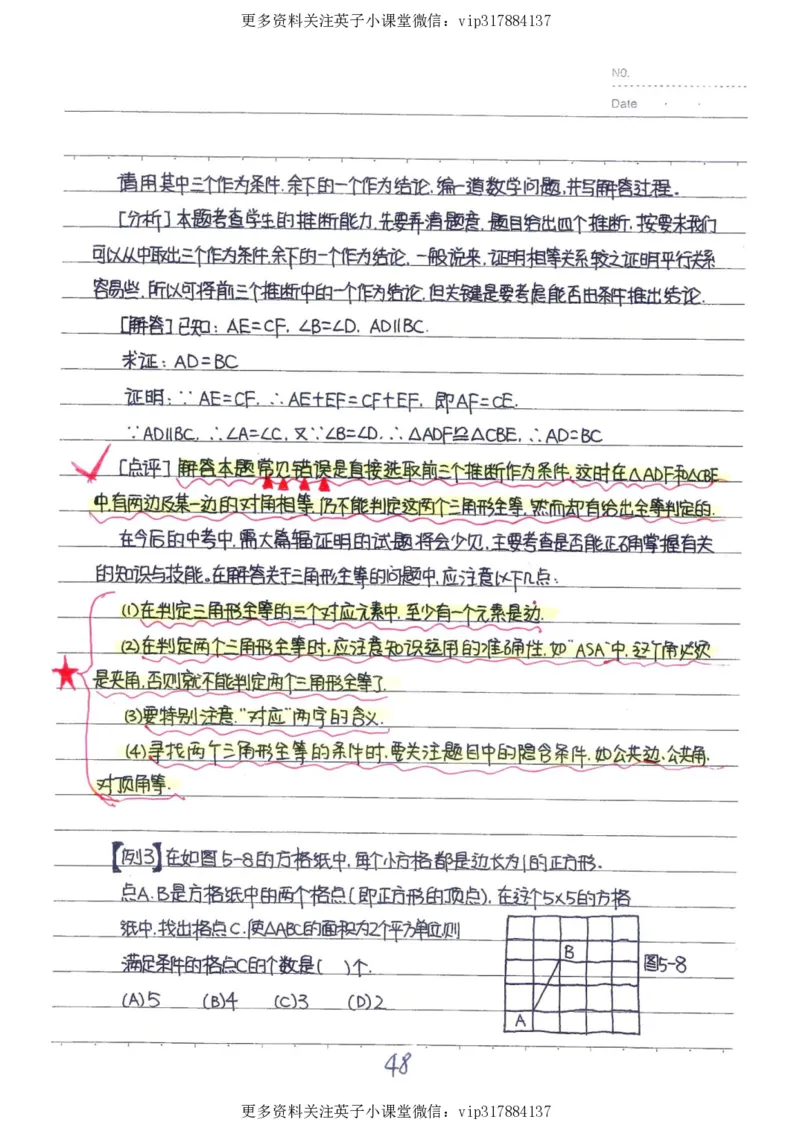 更多资料关注英子小课堂微信：vip317884137
NO.
Date
请用其中三个作为条件，余下的一个作为结论，编一道数学问题，并写解答过程。
[分析]本题考查学生的推断能力，先要弄清题意，题目给出四个推断，按要求我们
可以从中取出三个作为条件，余下的一个作为结论，一般说来，证明相等关系较之证明平行关系
容易些，所以可将前三个推断中的一个作为结论，但关键是要考虑能否由条件推出结论．
[解答]已知：AE=CF，∠B=∠D，AD∥BC．
求证：AD=BC
证明：∵AE=CF，∴AE+EF=CF+EF，即AF=CE．
∵AD∥BC，∴∠A=∠C，又∵∠B=∠D，∴△ADF≌△CBE，∴AD=BC
[点评]解答本题常见错误是直接选取前三个推断作为条件，这时在△ADF和△CBE
中，有两边及某一边的对角相等，仍不能判定这两个三角形全等，然而却有给出全等判定的．
在今后的中考中，需大篇辐证明的试题将会少见，主要考查是否能正确掌握有关
的知识与技能。在解答关于三角形全等的问题中，应注意以下几点：
(1)在判定三角形全等的三个对应元素中，至少有一个元素是边．
(2)在判定两个三角形全等时，应注意知识运用的准确性，如"ASA"中，这个角必须
是夹角，否则就不能判定两个三角形全等了．
(3)要特别注意"对应"两字的含义．
(4)寻找两个三角形全等的条件时，要关注题目中的隐含条件，如公共边，公共角，
对顶角等．
【例3】在如图5-8的方格纸中，每个小方格都是边长为1的正方形．
点A、B是方格纸中的两个格点(即正方形的顶点)，在这个5×5的方格
纸中，找出格点C，使△ABC的面积为2个平方单位，则
满足条件的格点C的个数是( )个．
(A)5 (B)4 (C)3 (D)2
B
A
图5-8
48
更多资料关注英子小课堂微信：vip317884137